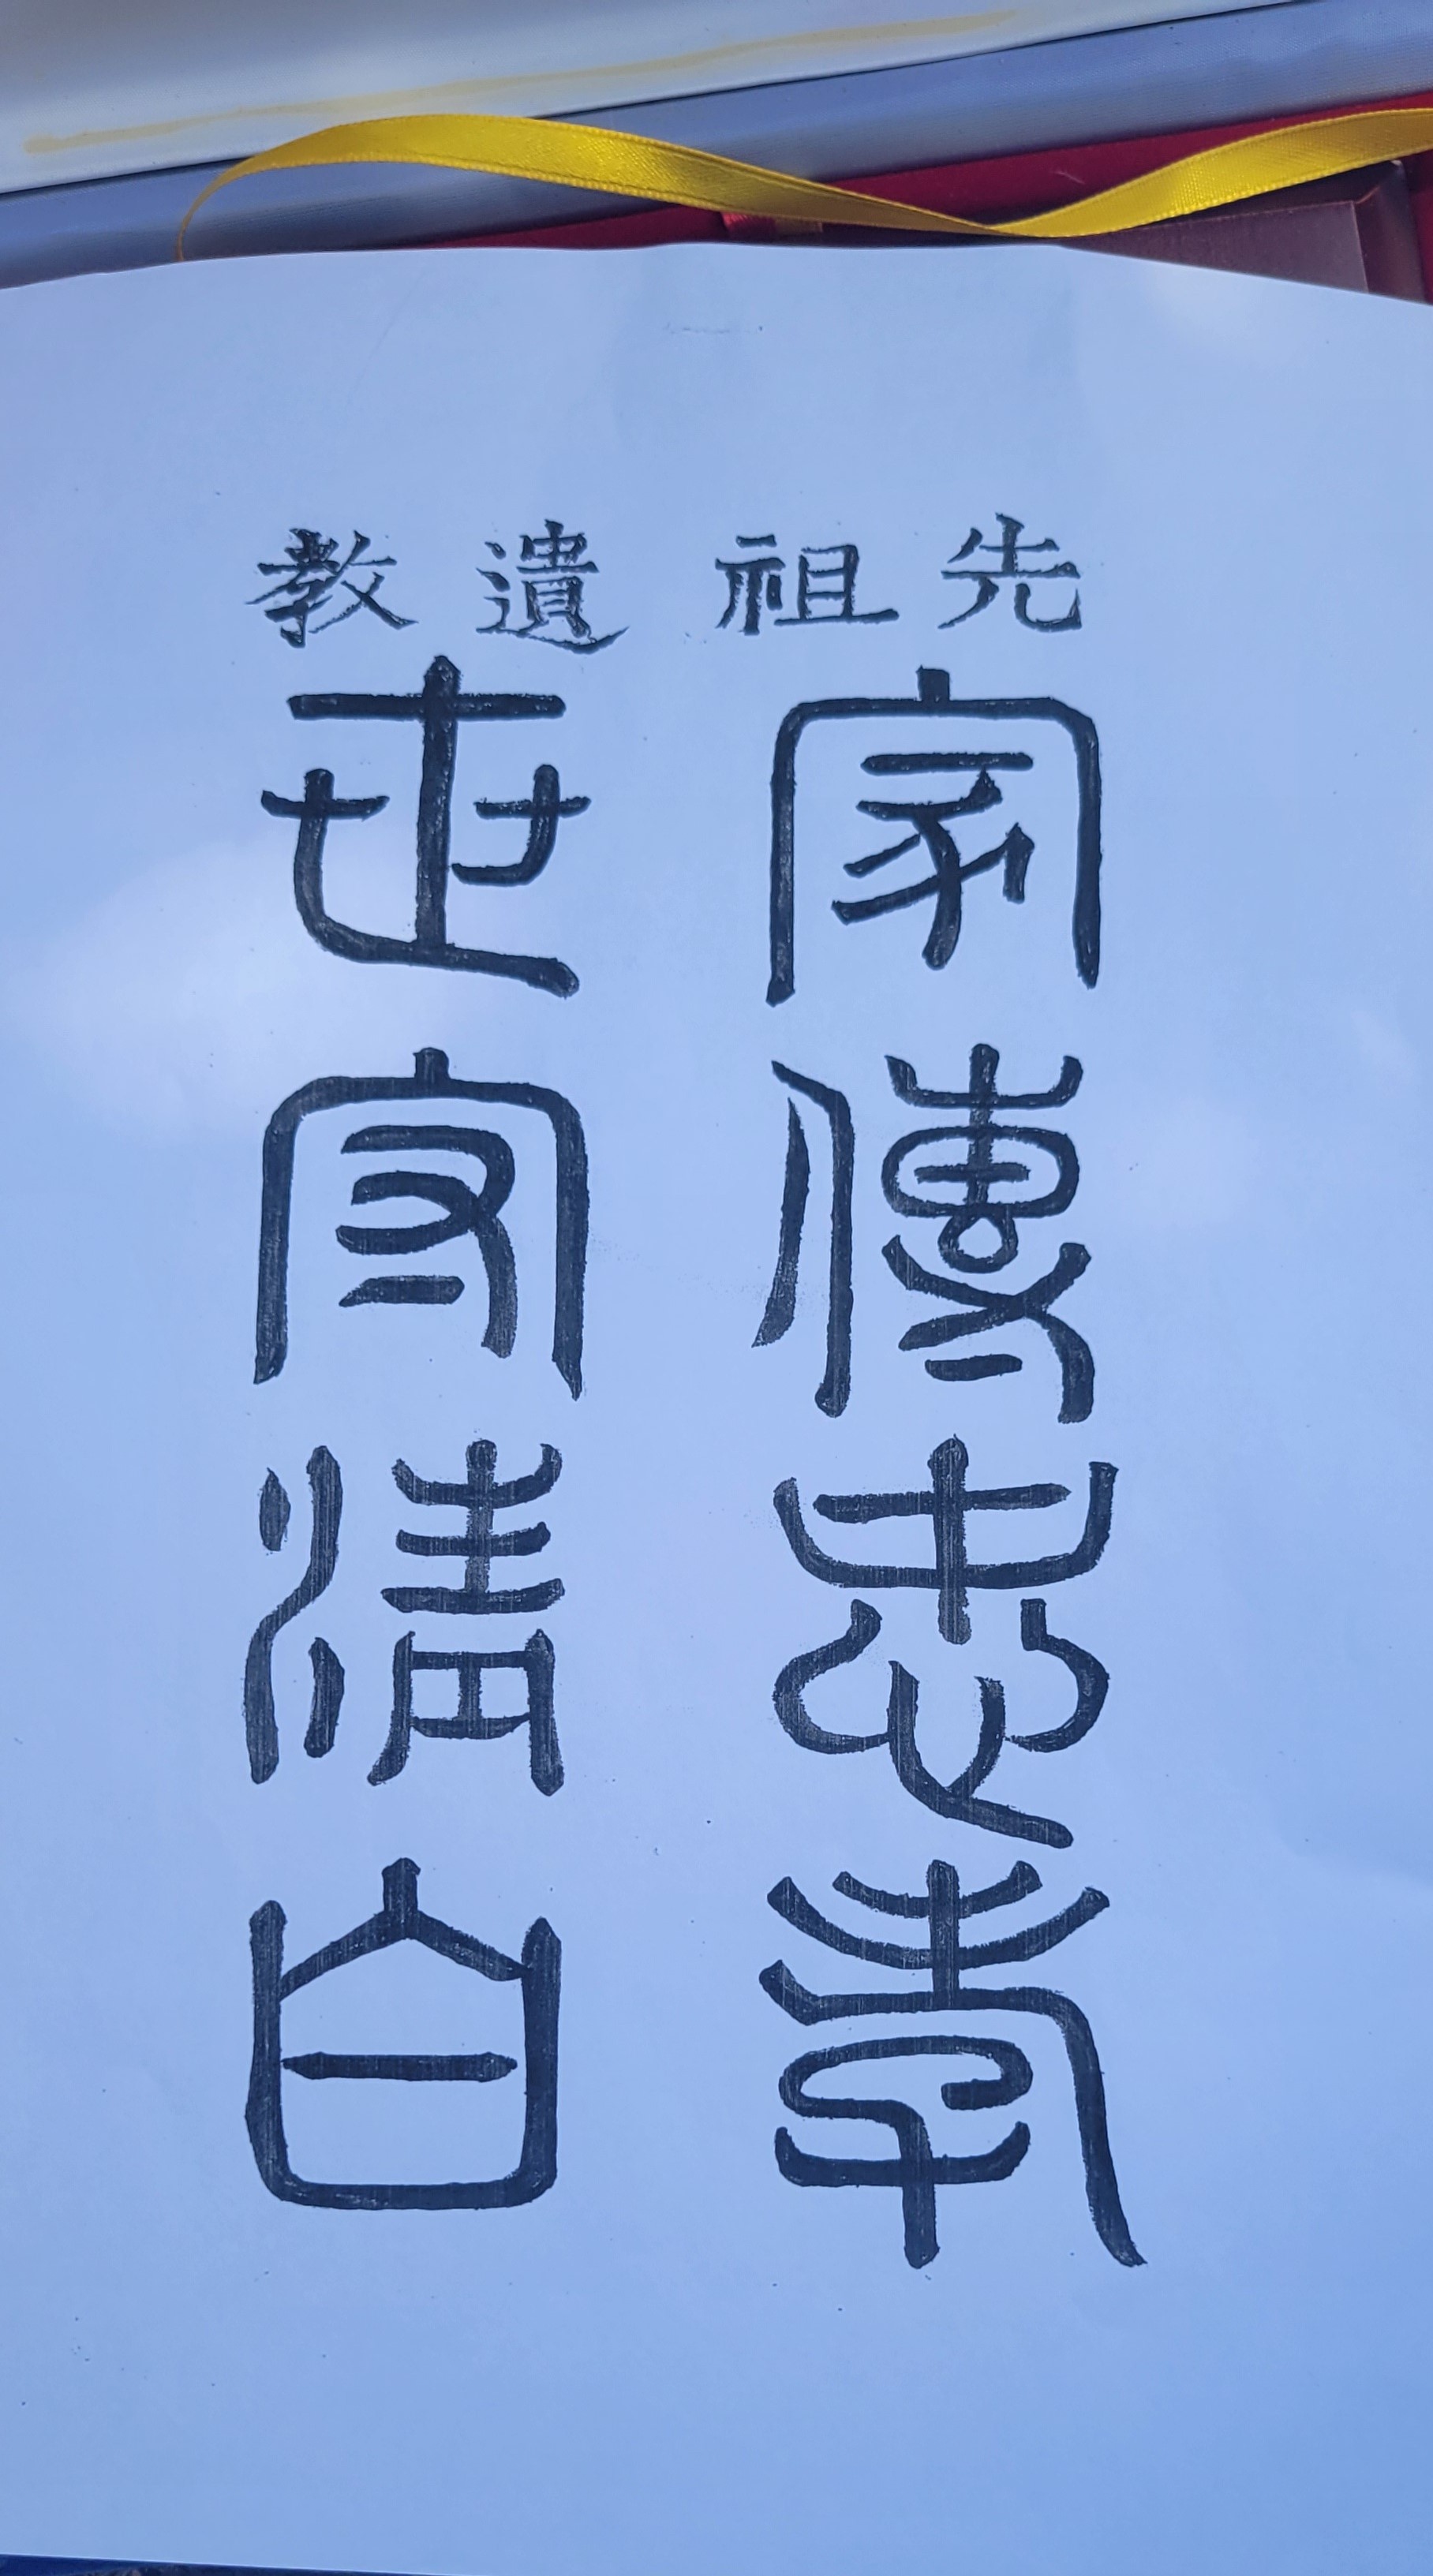 先祖遺教
家傳忠孝
世守清白